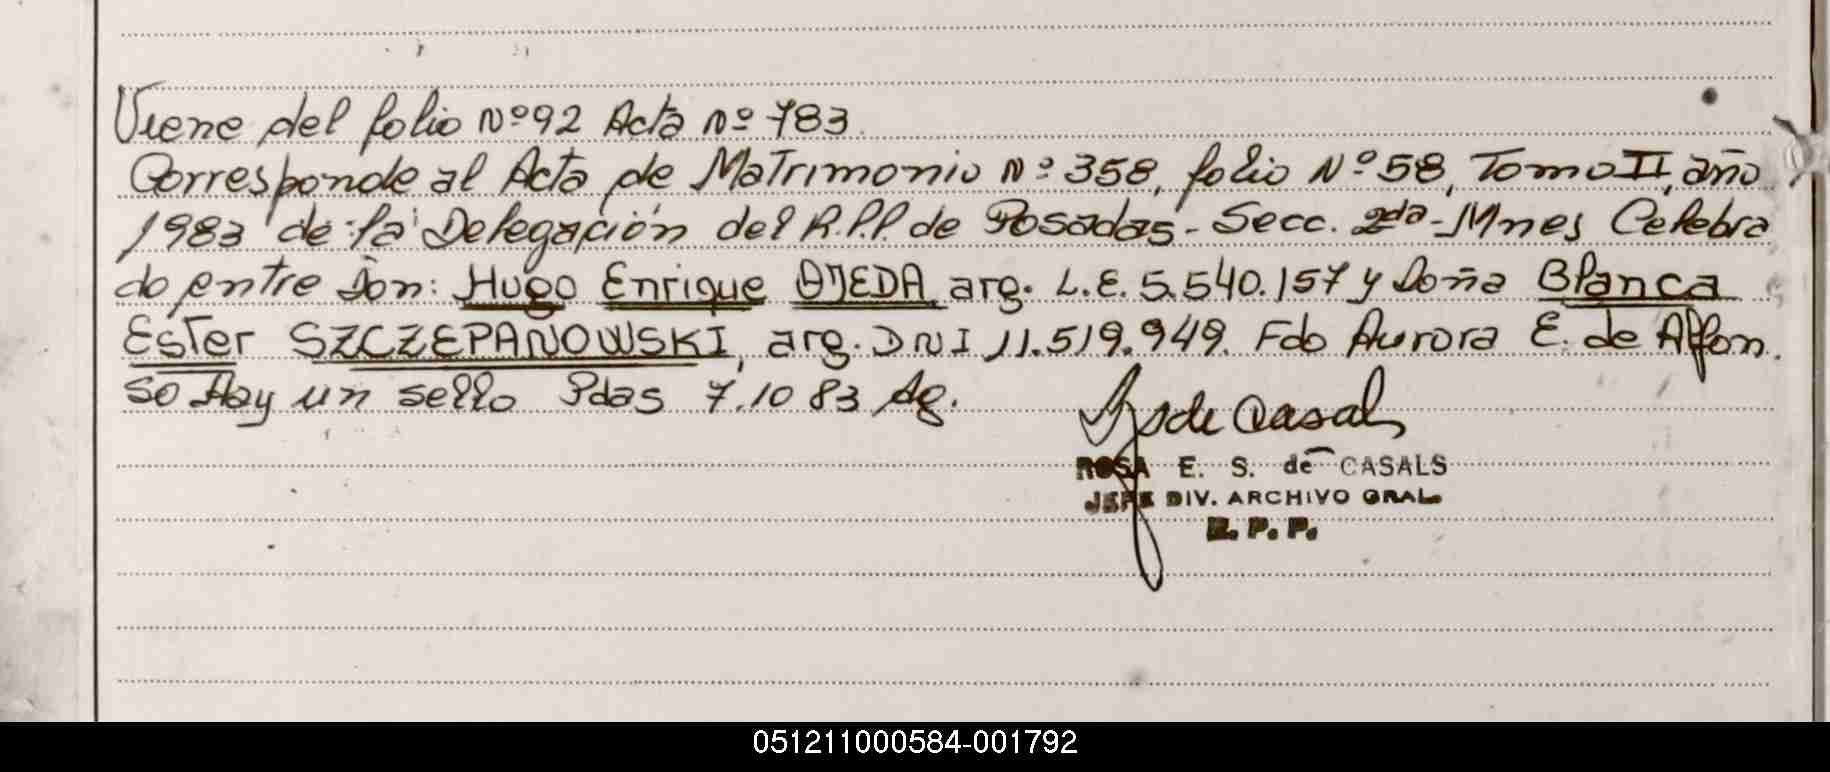 Viene del folio Nº 92 Acta Nº 783.
Corresponde al Acta de Matrimonio Nº 358, folio Nº 58, Tomo II, año
1983 de la Delegación del R.P.P. de Posadas - Secc. 2da - Mnes Celebra
do entre Don: Hugo Enrique OJEDA arg. L.E. 5.540.157 y Doña Blanca
Ester SZCZEPANOWSKI, arg. DNI 11.519.949. Fdo Aurora E. de Alfon
so Hay un sello Pdas 7.10 83 Ag.
de Casals
ROSA E. S. de CASALS
JEFE DIV. ARCHIVO GRAL.
R. P. P.
051211000584-001792